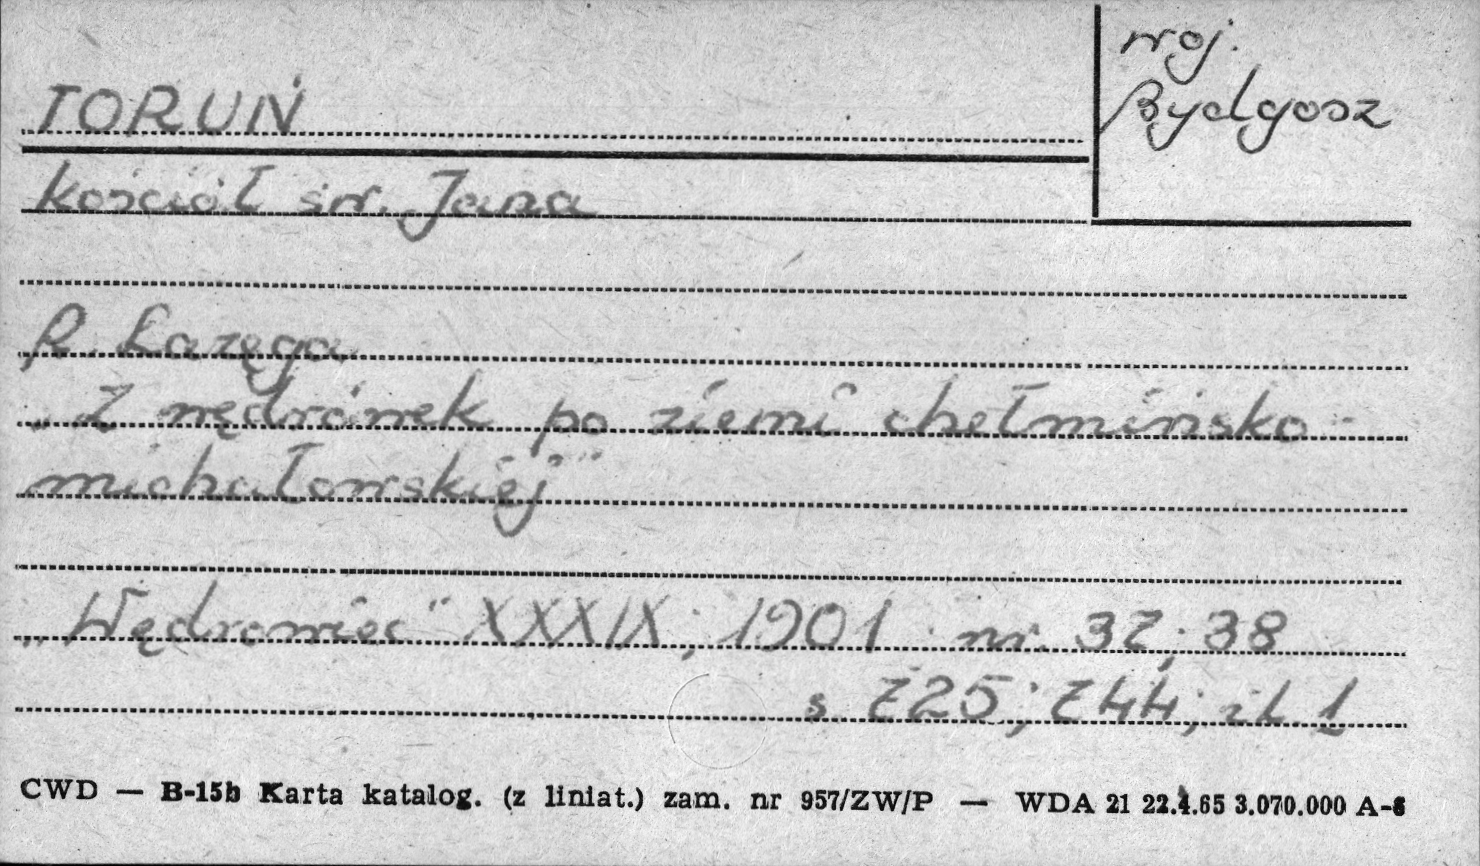 woj.
Bydgosz
TORUŃ
kościół św. Jana
R. Łazęga
„Z wędrówek po ziemi chełmińsko-
michałowskiéj"
„Wędrowiec" XXXIX; 1901 nr. 37; 38
s 725; 744; il 1
CWD — B-15b Karta katalog. (z liniat.) zam. nr 957/ZW/P — WDA 21 22.4.65 3.070.000 A-6